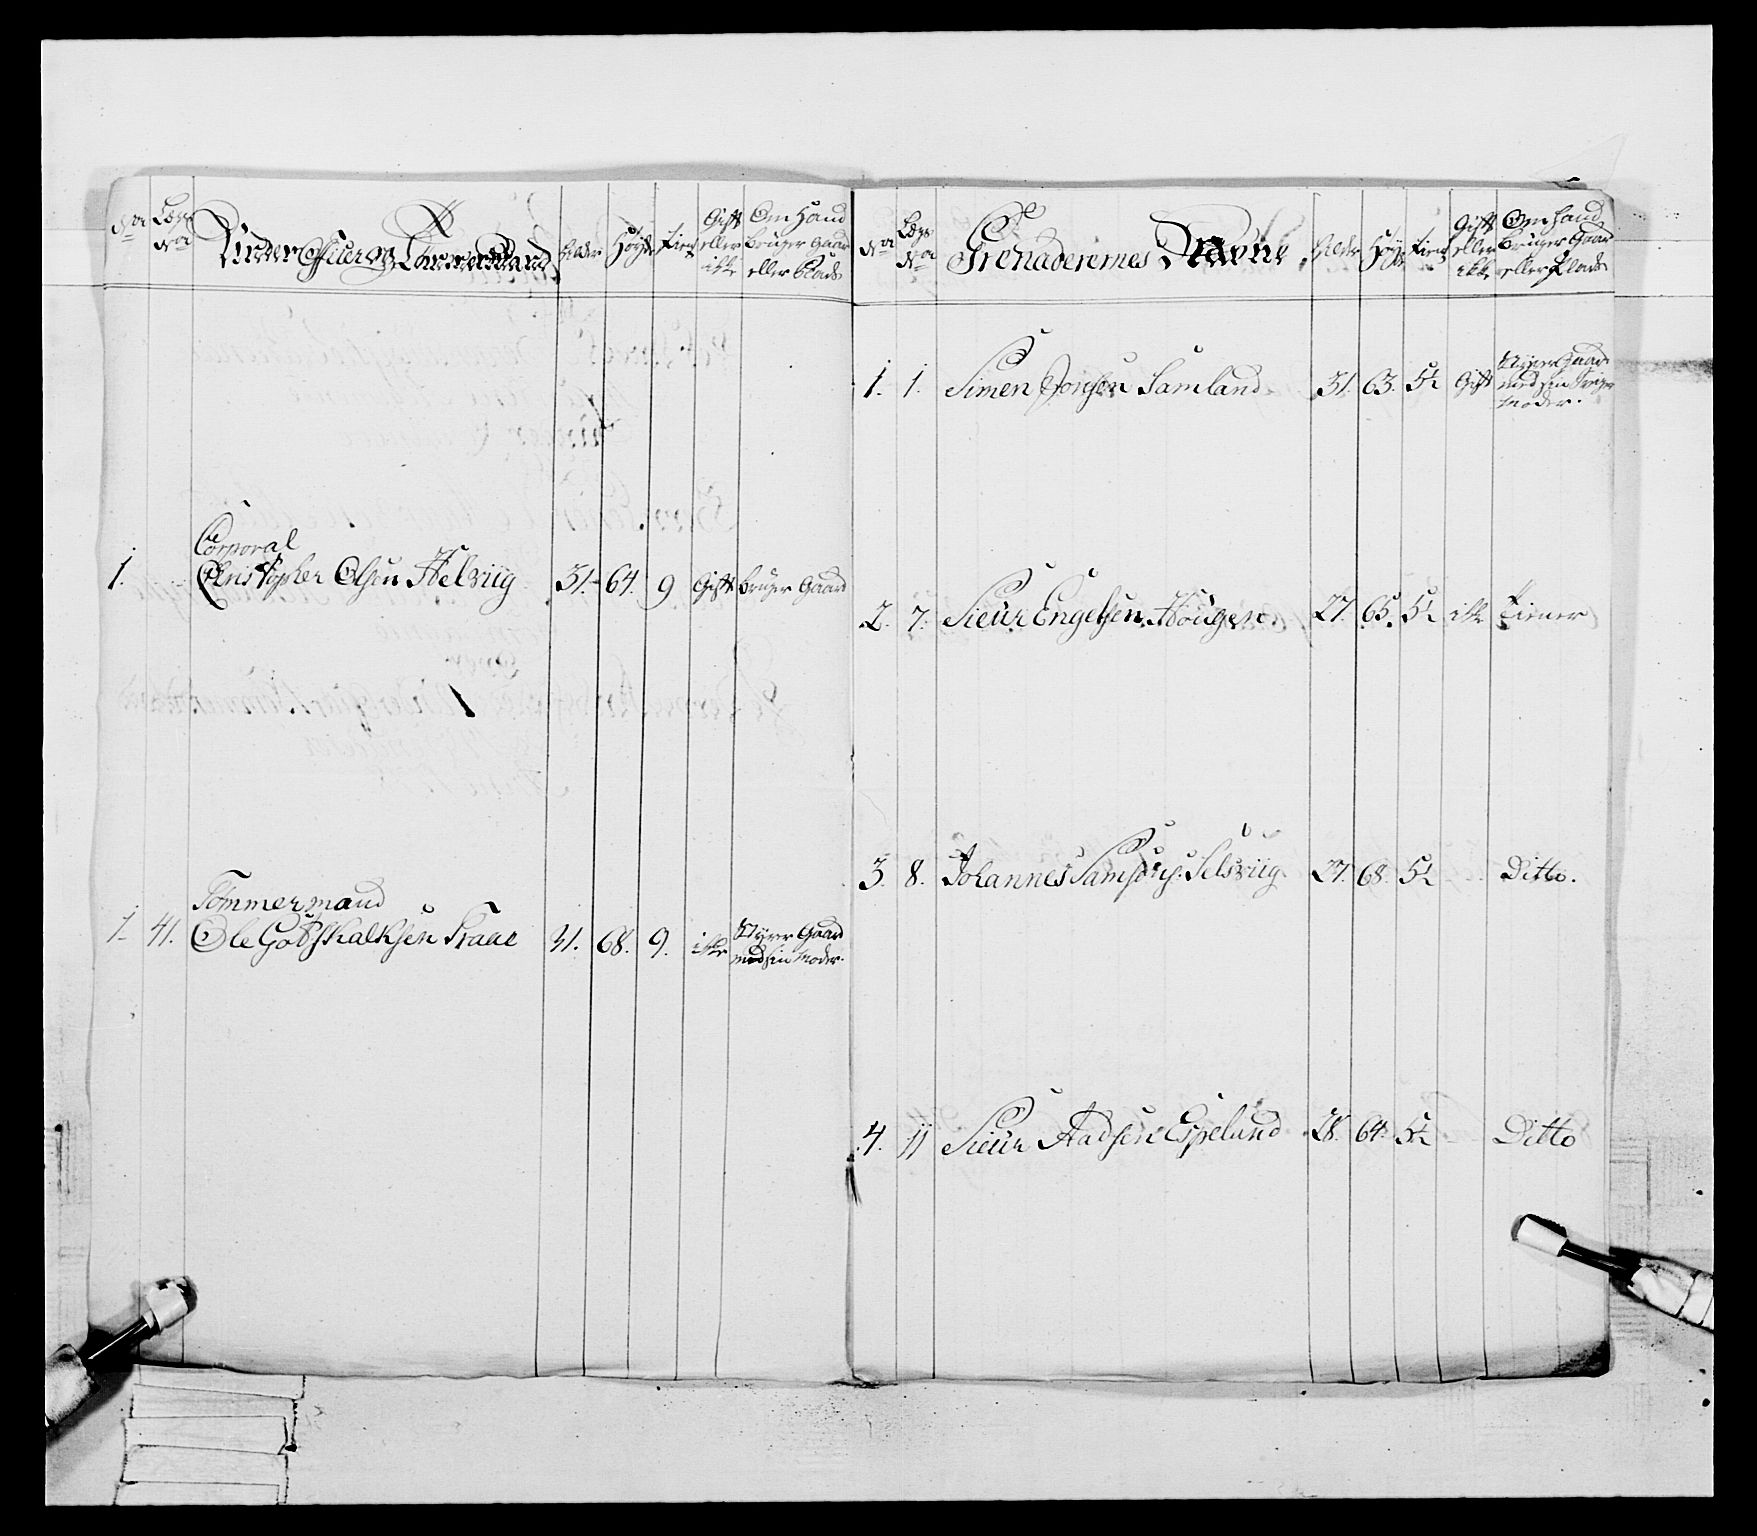 No Lægs No Under Officier og Tømmermænd Alder Høyde Tient Gift eller ikke Om Hand bruger Gaard eller Plads
1. Corporal
Christopher Olsen Helviig 31. 64. 9 Gift bruger Gaard
1. 41. Tømmermand
Ole Godskalksen Traae 31. 68. 9. ikke Styrer Gaard
med sin Moder.
No Lægs No Grenaderernes Navne Alder Høyde Tient Gift eller ikke Om Hand bruger Gaard eller Plads
1. 1. Simen Joensen Samland 31. 63. 5½ Gift Styrer Gaard
med sin
Moder.
2. 7. Siur Engelsen Hougen 27. 65. 5½ ikke Tiener
3. 8. Johannes Samsons: Selsviig 27. 68. 5½ Ditto.
4. 11 Siur Aadsen Espelund 28. 64. 5½ Ditto